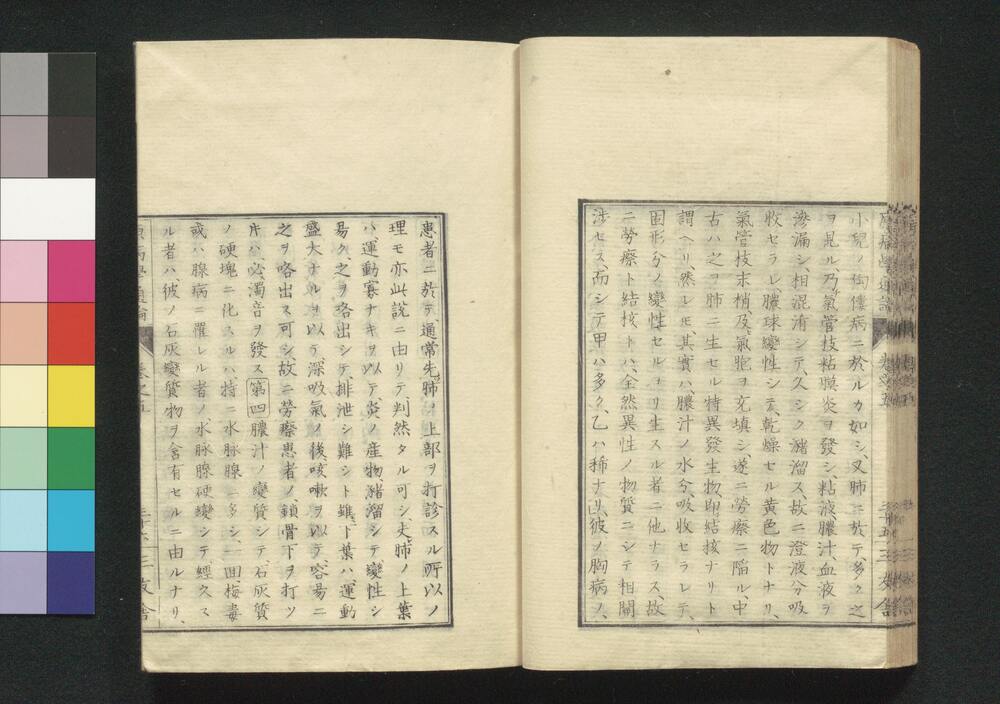 小兒ノ佝僂病ニ於ルカ如シ、又肺ニ於テ、多ク之
ヲ見ル、乃氣管枝粘膜炎ヲ發シ、粘液膿汁、血液ヲ
滲漏シ、相混淆シテ、久シク瀦溜ス、故ニ澄液分吸
收セラレ、膿球變性シテ、乾燥セル黄色物トナリ、
氣管枝末梢、及氣胞ヲ充填シ、遂ニ勞瘵ニ陥ル、中
古ハ之ヲ肺ニ生セル特異發生物、即結核ナリト
謂ヘリ、然レモ、其實ハ膿汁ノ水分、吸收セラレテ、
固形分ノ變性セルヨリ生スル者ニ他ナラス、故
ニ勞瘵ト結核トハ、全然異性ノ物質ニシテ相關
渉セス、而シテ甲ハ多ク、乙ハ稀ナリ、以彼ノ胸病ノ、
患者ニ於テ、通常先肺ノ上部ヲ打診スル所以ノ
理モ亦此說ニ由リテ、判然タル可シ、夫肺ノ上葉
ハ、運動寡ナキヲ以テ、炎ノ産物、瀦溜シテ變性シ
易ク、之ヲ咯出シテ、排泄シ難シト雖、下葉ハ運動
盛大ナルヲ以テ、深吸氣ノ後、咳嗽ヲ以テ、容易ニ
之ヲ咯出ス可シ、故ニ勞瘵患者ノ、鎖骨下ヲ打ツ
片ハ、必濁音ヲ發ス第四膿汁ノ變質シテ、石灰質
ノ硬塊ニ化スルハ、特ニ水脉腺ニ多シ、一回、梅毒
或ハ腺病ニ罹レル者ノ水脉腺硬變シテ、經久ス
ル者ハ彼ノ石灰變質物ヲ含有セルニ由ルナリ、